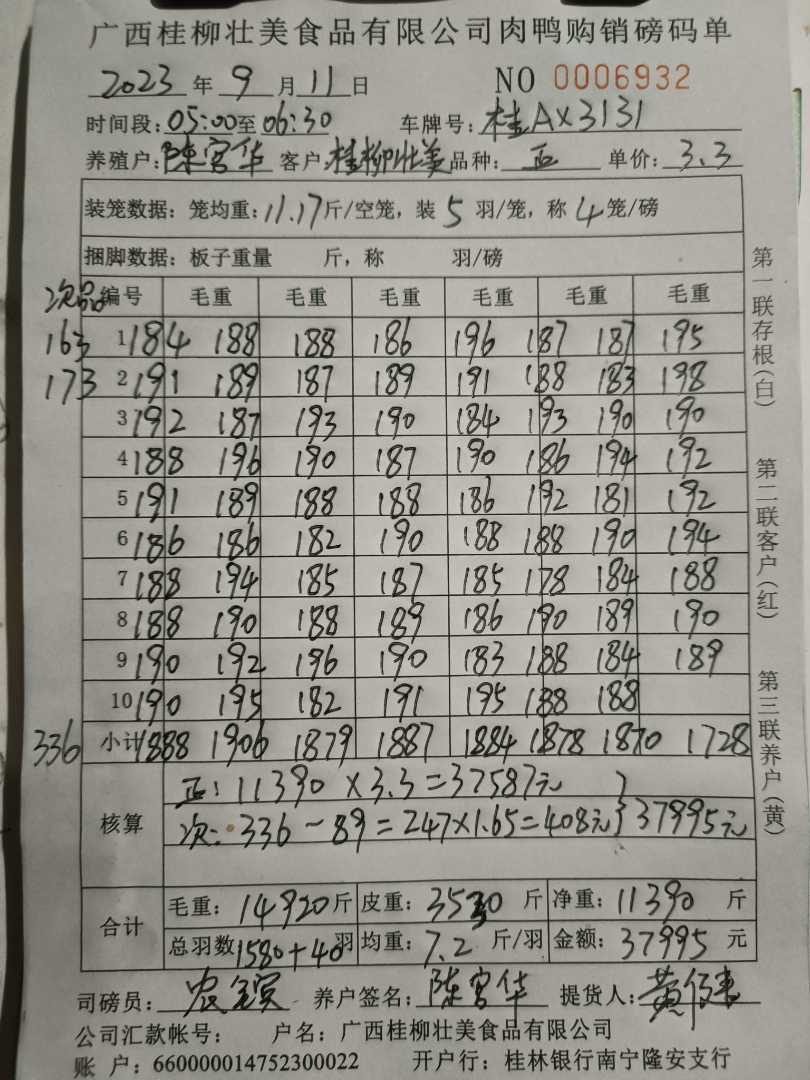 广西桂柳壮美食品有限公司肉鸭购销磅码单
2023 年 9 月 11 日 NO 0006932
时间段: 05:00 至 06:30 车牌号: 桂AX3131
养殖户: 陈宫华 客户: 桂柳壮美 品种: 正 单价: 3.3
装笼数据: 笼均重: 11.17 斤/空笼, 装 5 羽/笼, 称 4 笼/磅
捆脚数据: 板子重量 斤, 称 羽/磅
次品 编号 毛重 毛重 毛重 毛重 毛重 毛重
163 1 184 188 188 186 196 187 187 195
173 2 191 189 187 189 191 188 183 198
3 192 187 193 190 184 193 190 190
4 188 196 190 187 190 186 194 192
5 191 189 188 188 186 192 181 192
6 186 186 182 190 188 188 190 194
7 188 194 185 187 185 178 184 188
8 188 190 188 189 186 190 189 190
9 190 192 196 190 183 188 184 189
10 190 195 182 191 195 188 188
336 小计 1888 1906 1879 1887 1884 1878 1870 1728
核算 正: 11390 × 3.3 = 37587元
次: 336 - 89 = 247 × 1.65 = 408元 } 37995元
合计 毛重: 14920 斤 皮重: 3530 斤 净重: 11390 斤
总羽数 1580+40 羽 均重: 7.2 斤/羽 金额: 37995 元
司磅员: 农 宾 养户签名: 陈宫华 提货人: 黄
公司汇款帐号: 户名: 广西桂柳壮美食品有限公司
账 户: 660000014752300022 开户行: 桂林银行南宁隆安支行
第一联存根(白)
第二联客户(红)
第三联养户(黄)